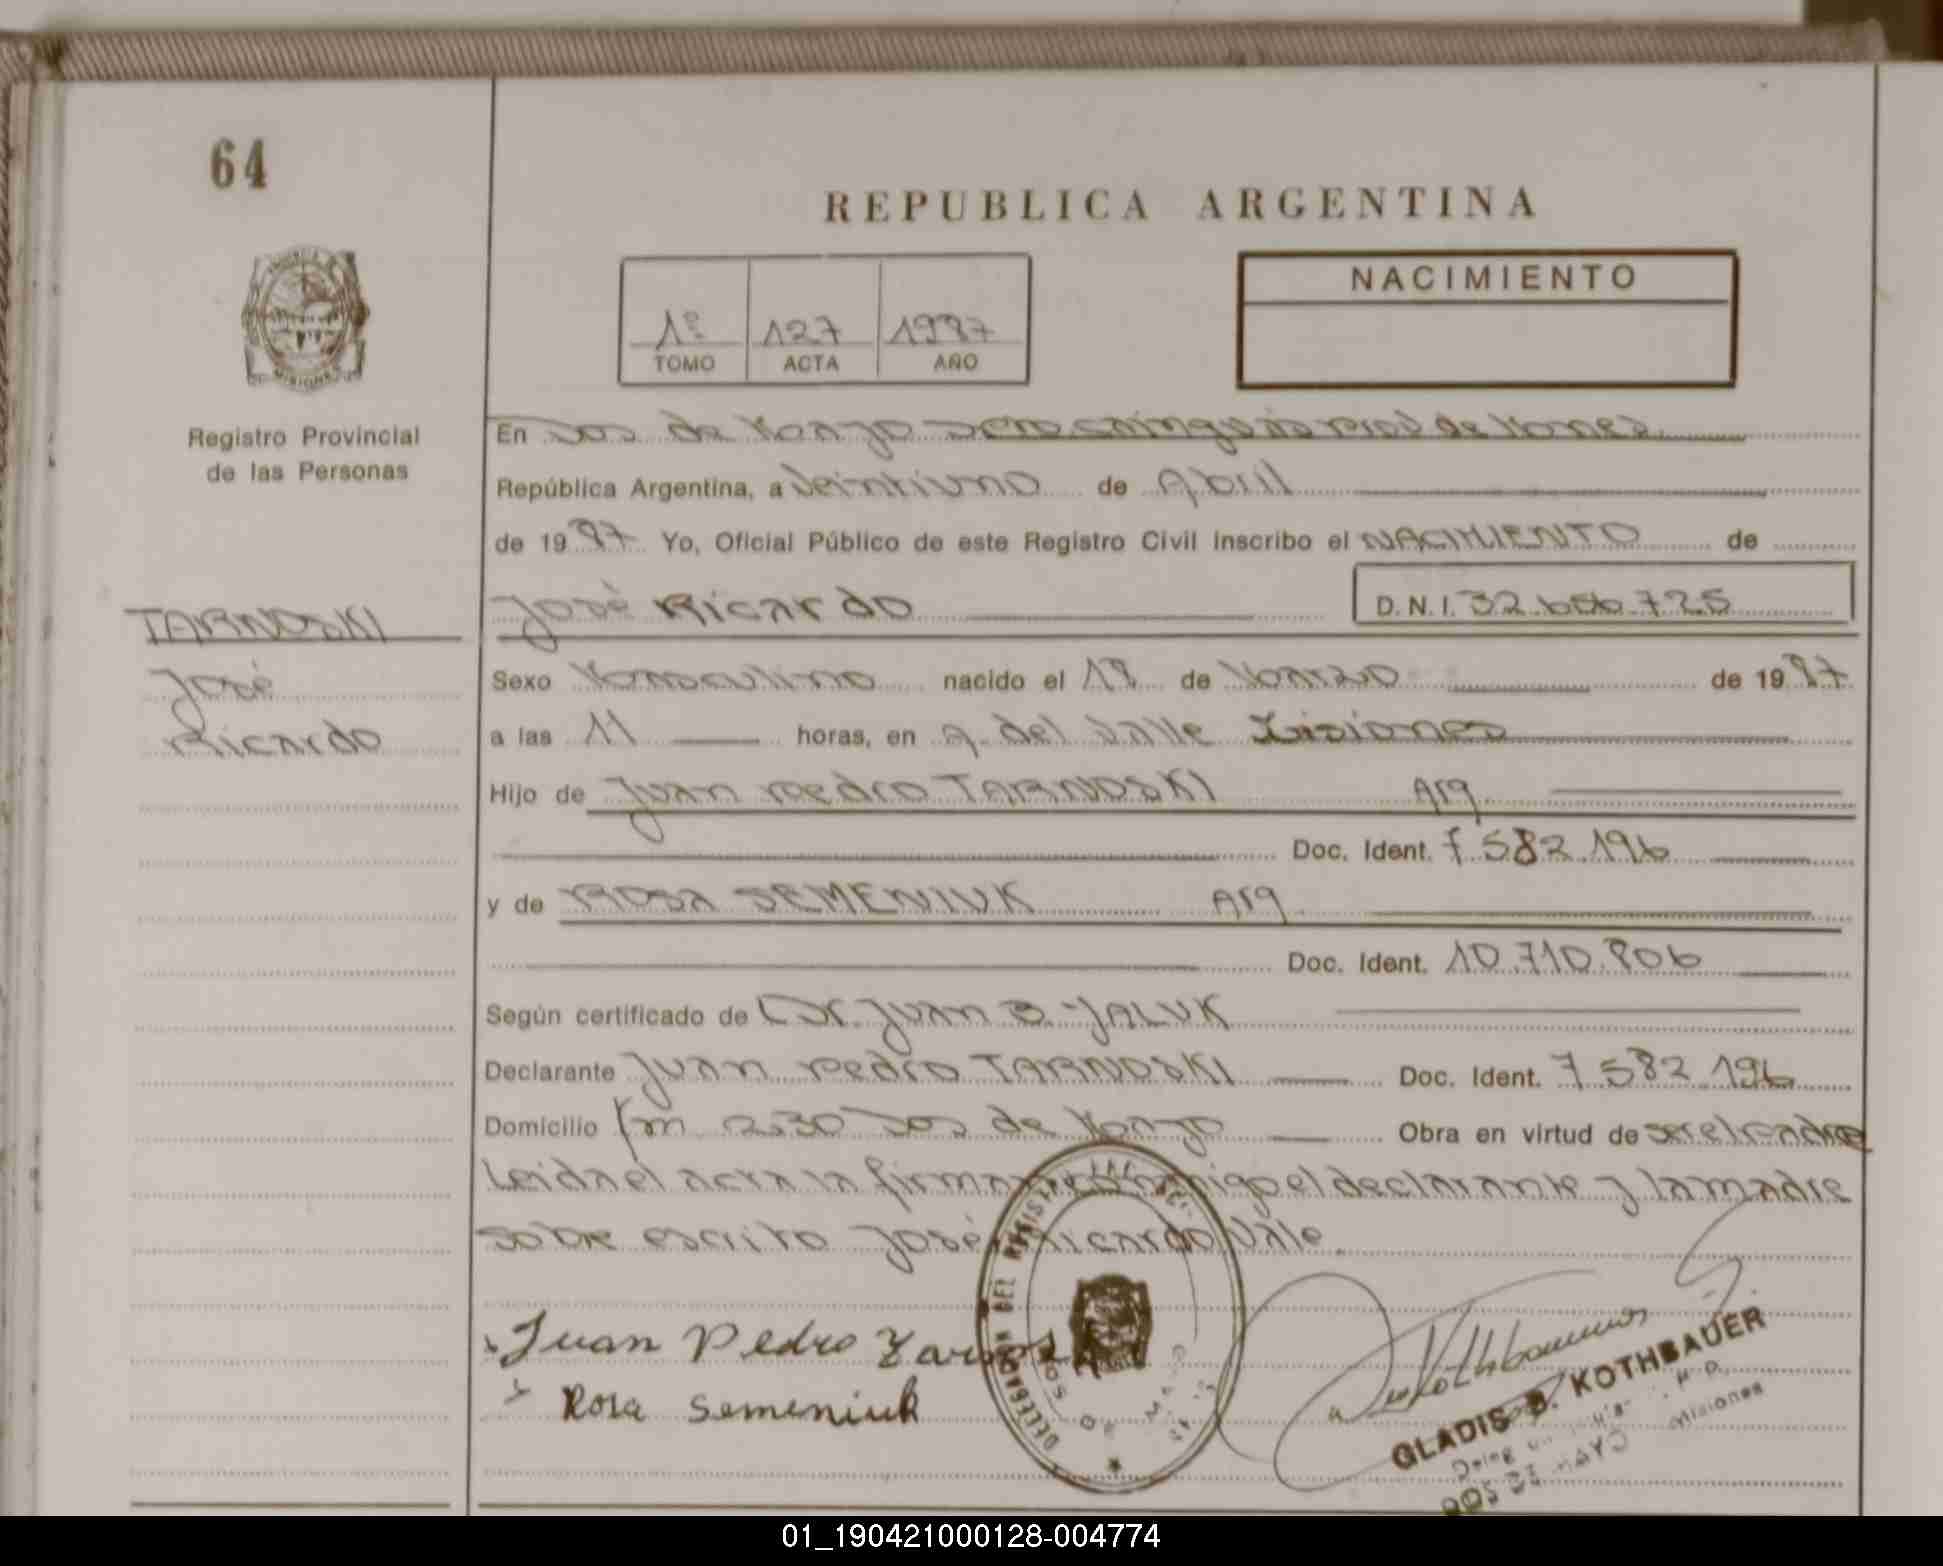 64
REPUBLICA ARGENTINA
NACIMIENTO
1º 127 1987
TOMO ACTA AÑO
MISIONES
Registro Provincial
de las Personas
En Dos de Mayo de Misiones
República Argentina, a Veintiuno de Abril
de 1987 Yo, Oficial Público de este Registro Civil inscribo el NACIMIENTO de
José Ricardo D.N.I. 32.656.725
TARNOSKI
José
Ricardo
Sexo Masculino nacido el 18 de Marzo de 1987
a las 11 horas, en A. del Valle Misiones
Hijo de Juan Pedro TARNOSKI Arg
Doc. Ident. 7.582.196
y de ROSA SEMENIUK Arg
Doc. Ident. 10.710.806
Según certificado de Dr. Juan B. JALUK
Declarante Juan Pedro TARNOSKI Doc. Ident. 7.582.196
Domicilio Km 230 Dos de Mayo Obra en virtud de ser el Padre
Leida el acta la firman conmigo el declarante y la madre
sobre escrito José Ricardo Vale.
DELEGACION DEL REGISTRO
Juan Pedro Tarnoski
Rosa Semeniuk
GLADIS B. KOTHBAUER
DOS DE MAYO Misiones
01_190421000128-004774